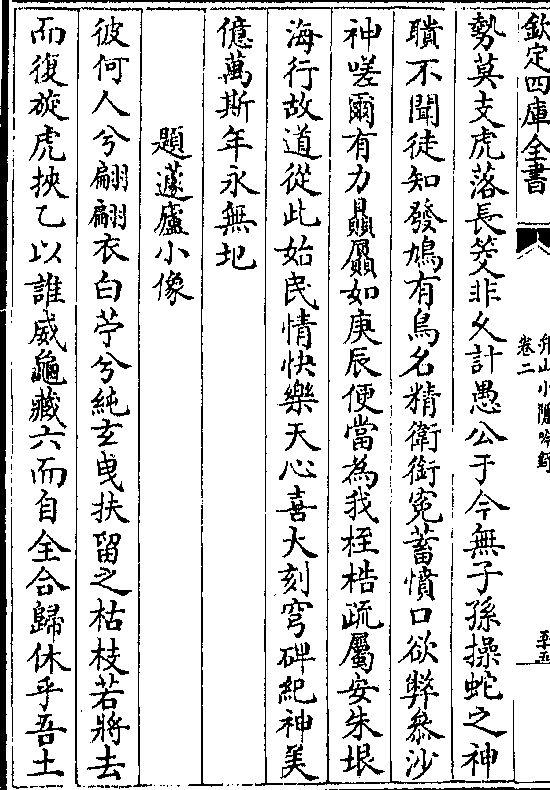 欽定四庫全書
卷二
勢莫支虎落長筊非久計愚公于今無子孫操蛇之神
聵不聞徒知發鳩有鳥名精衛銜寃蓄憤口欲弊叅沙
神嗟爾有力贔屭如庚辰便當為我桎梏疏屬安朱垠
海行故道從此始民情快樂天心喜大刻穹碑紀神美
億萬斯年永無圯
題蘧廬小像
彼何人兮翩翩衣白苧兮純玄曳扶留之枯枝若將去
而復旋虎挾乙以誰威龜藏六而自全合歸休乎吾土